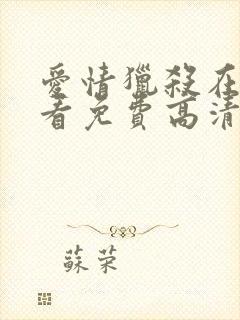 愛情獵殺在
看免費高清
蘇荣